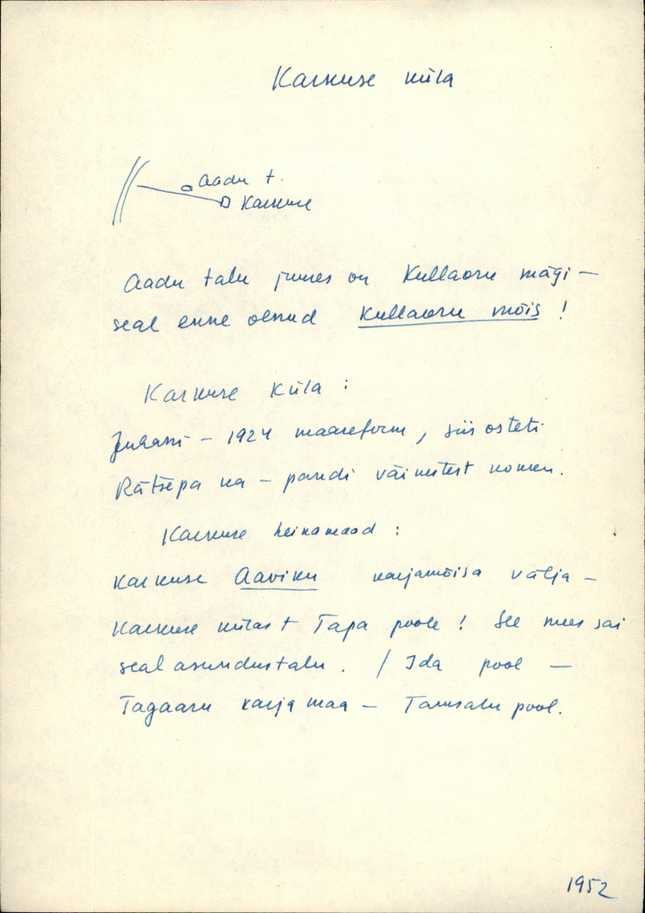 Karkuse küla
Aadu t.
Karkuse
Aadu talu juures on Kullaaru mägi –
seal enne olnud Kullaaru mõis !
Karkuse küla :
Juhani – 1924 maareform, siis osteti
Rätsepa ka – pandi väimutest
Karkuse heinamaad :
Karkuse Aaviku karjamõisa välja –
Karkuse külast Tapa poole ! See mees sai
seal asundustalu. / Ida pool –
Tagaaru karjamaa – Tamsalu pool.
1952